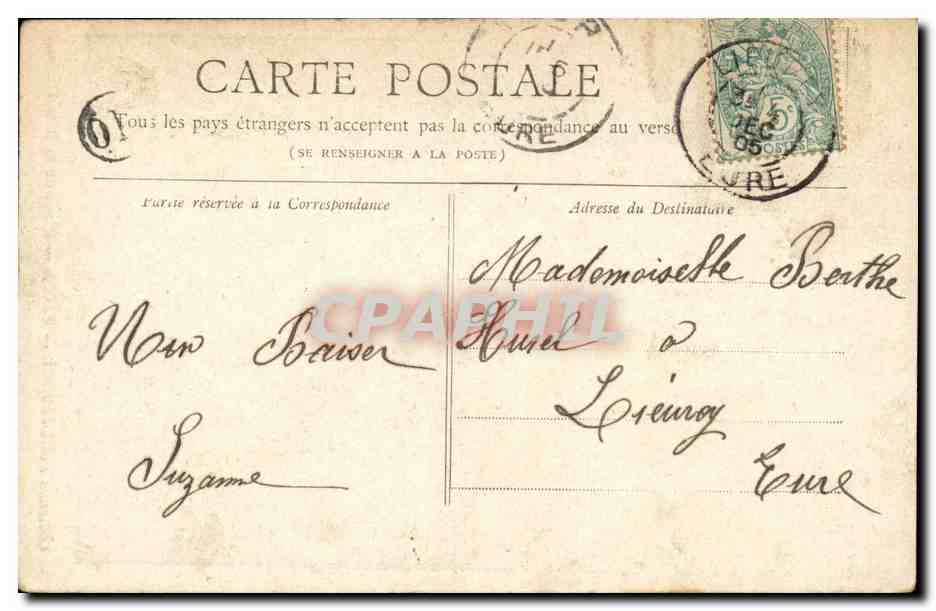 CARTE POSTALE
Tous les pays étrangers n'acceptent pas la correspondance au verso
(SE RENSEIGNER A LA POSTE)
Partie réservée à la Correspondance
Adresse du Destinataire
Un Baiser
Suzanne
Mademoiselle Berthe
Husel à
Liéurey
Eure
CPAPHIL
5c
POSTES
DEC
05
EURE